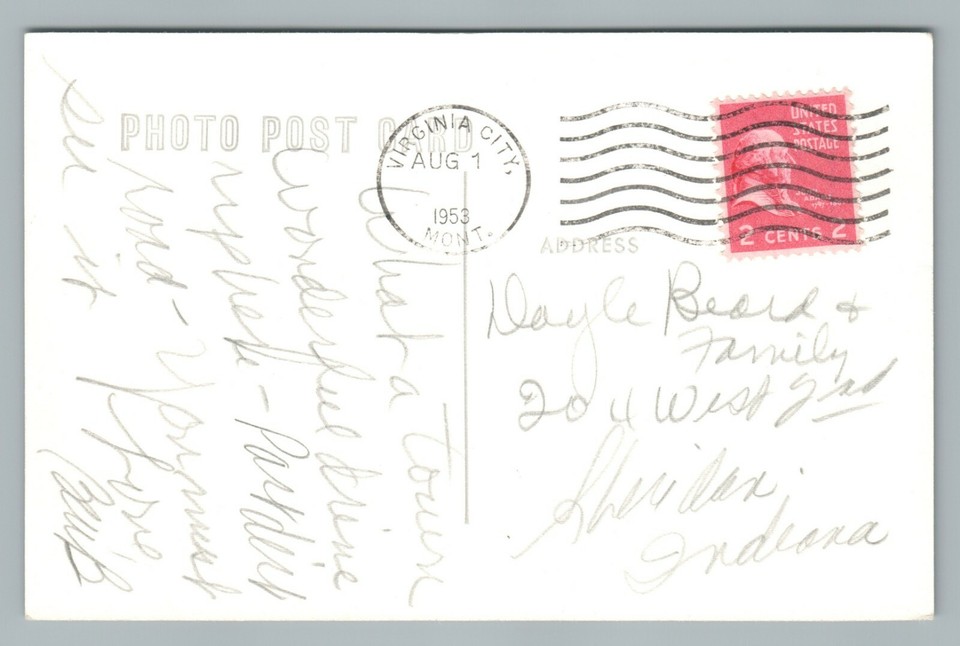 PHOTO POST CARD
VIRGINIA CITY,
AUG 1
1953
MONT.
UNITED
STATES
POSTAGE
2 CENTS 2
ADDRESS
Doyle Beard &
Family
204 West 2nd
Sheridan,
Indiana
What a town
Wonderful drive
up here - Part dirt
road - You must
see it